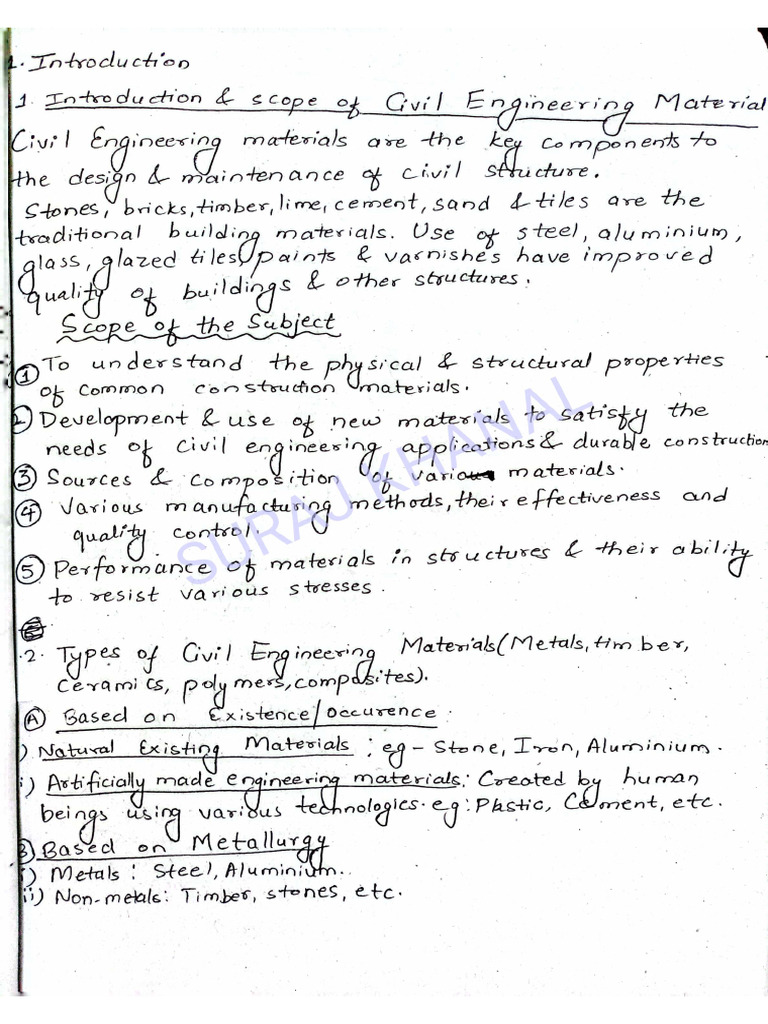 1. Introduction
1. Introduction & scope of Civil Engineering Material
Civil Engineering materials are the key components to
the design & maintenance of civil structure.
Stones, bricks, timber, lime, cement, sand & tiles are the
traditional building materials. Use of steel, aluminium,
glass, glazed tiles, paints & varnishes have improved
quality of buildings & other structures.
Scope of the Subject
① To understand the physical & structural properties
of common construction materials.
② Development & use of new materials to satisfy the
needs of civil engineering applications & durable construction
③ Sources & composition of various materials.
④ Various manufacturing methods, their effectiveness and
quality control.
⑤ Performance of materials in structures & their ability
to resist various stresses.
2. Types of Civil Engineering Materials (Metals, timber,
ceramics, polymers, composites).
Ⓐ Based on Existence/Occurence
i) Natural Existing Materials : eg - Stone, Iron, Aluminium.
ii) Artificially made engineering materials: Created by human
beings using various technologies. eg: Plastic, Cement, etc.
Ⓑ Based on Metallurgy
i) Metals : Steel, Aluminium.
ii) Non-metals: Timber, stones, etc.
SURAJ KHANAL